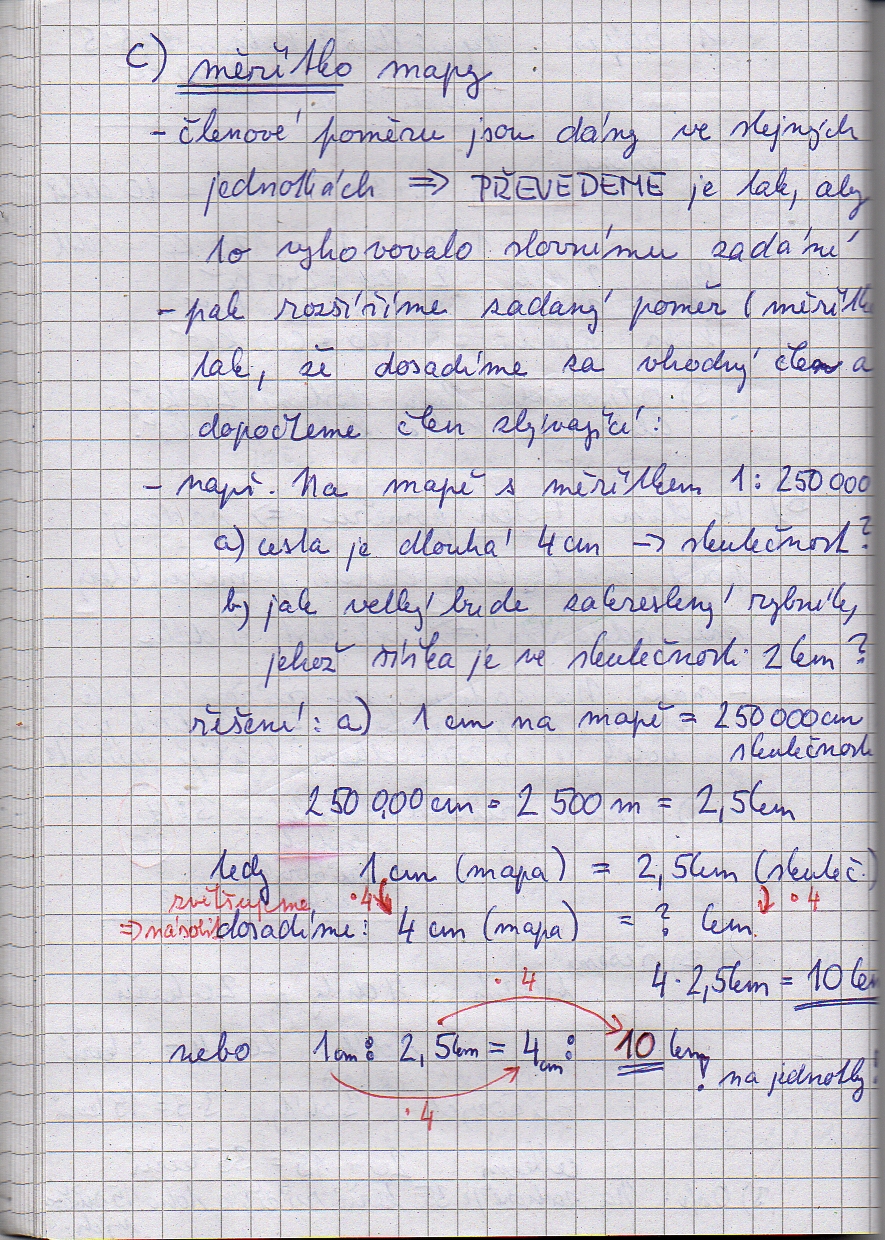 c) měřítko mapy :
- členové poměru jsou dány ve stejných
jednotkách => PŘEVEDEME je tak, aby
to vyhovovalo slovnímu zadání
- pak rozšíříme zadaný poměr (měřítk
tak, že dosadíme za vhodný člen a
dopočteme člen zbývající :
- např. Na mapě s měřítkem 1 : 250 000
a) cesta je dlouhá 4 cm -> skutečnost ?
b) jak velký bude zakreslený rybník,
jehož šířka je ve skutečnosti 2 km ?
řešení : a) 1 cm na mapě = 250 000 cm
skutečnosti
250 000 cm = 2 500 m = 2,5 km
tedy 1 cm (mapa) = 2,5 km (skuteč.)
zvětšujeme · 4 · 4
=> násobit dosadíme : 4 cm (mapa) = ? km
4 · 2,5 km = 10 km
· 4
nebo 1 cm : 2,5 km = 4 cm : 10 km
! na jednotky !
· 4